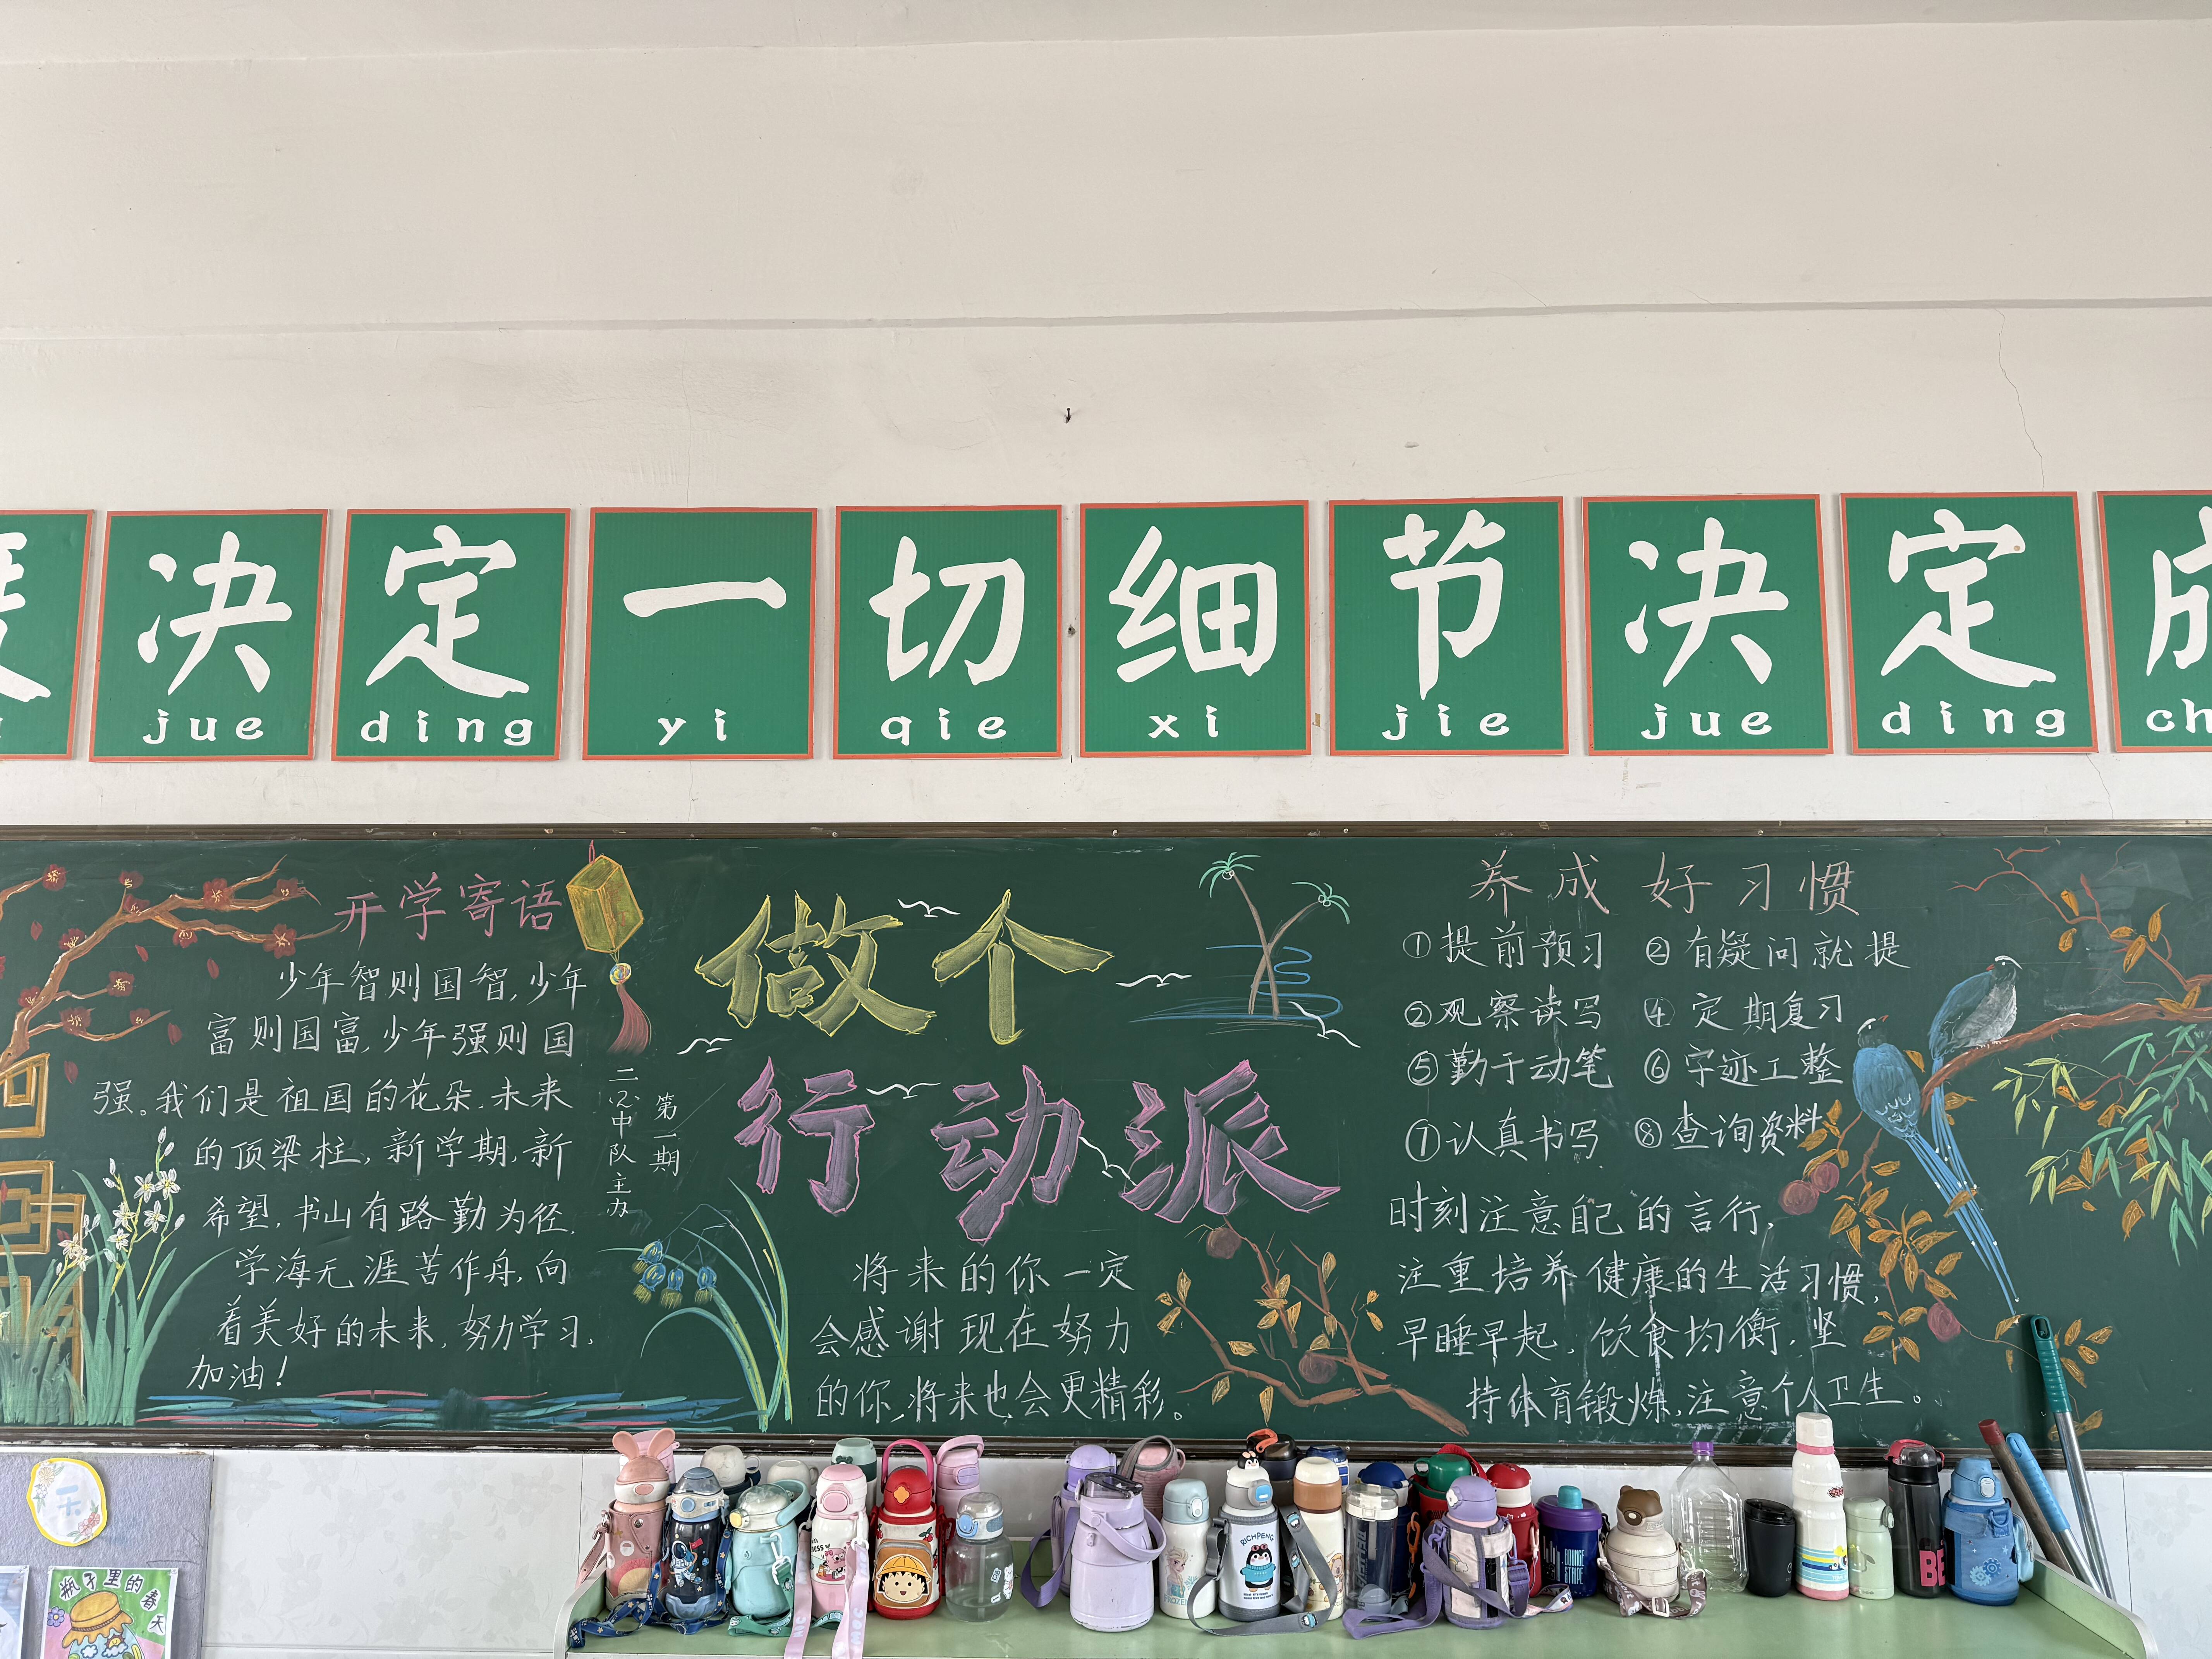 决定一切细节决定
jue ding yi qie xi jie jue ding ch
开学寄语
少年智则国智,少年
富则国富,少年强则国
强。我们是祖国的花朵,未来
的顶梁柱,新学期,新
希望,书山有路勤为径,
学海无涯苦作舟,向
着美好的未来,努力学习,
加油!
第一期
二(2)中队主办
做个
行动派
将来的你一定
会感谢现在努力
的你,将来也会更精彩。
养成好习惯
①提前预习 ②有疑问就提
②观察读写 ④定期复习
⑤勤于动笔 ⑥字迹工整
⑦认真书写 ⑧查询资料
时刻注意自己的言行,
注重培养健康的生活习惯,
早睡早起,饮食均衡,坚
持体育锻炼,注意个人卫生。
瓶子里的春天
RICHPENG
FROZEN
BE